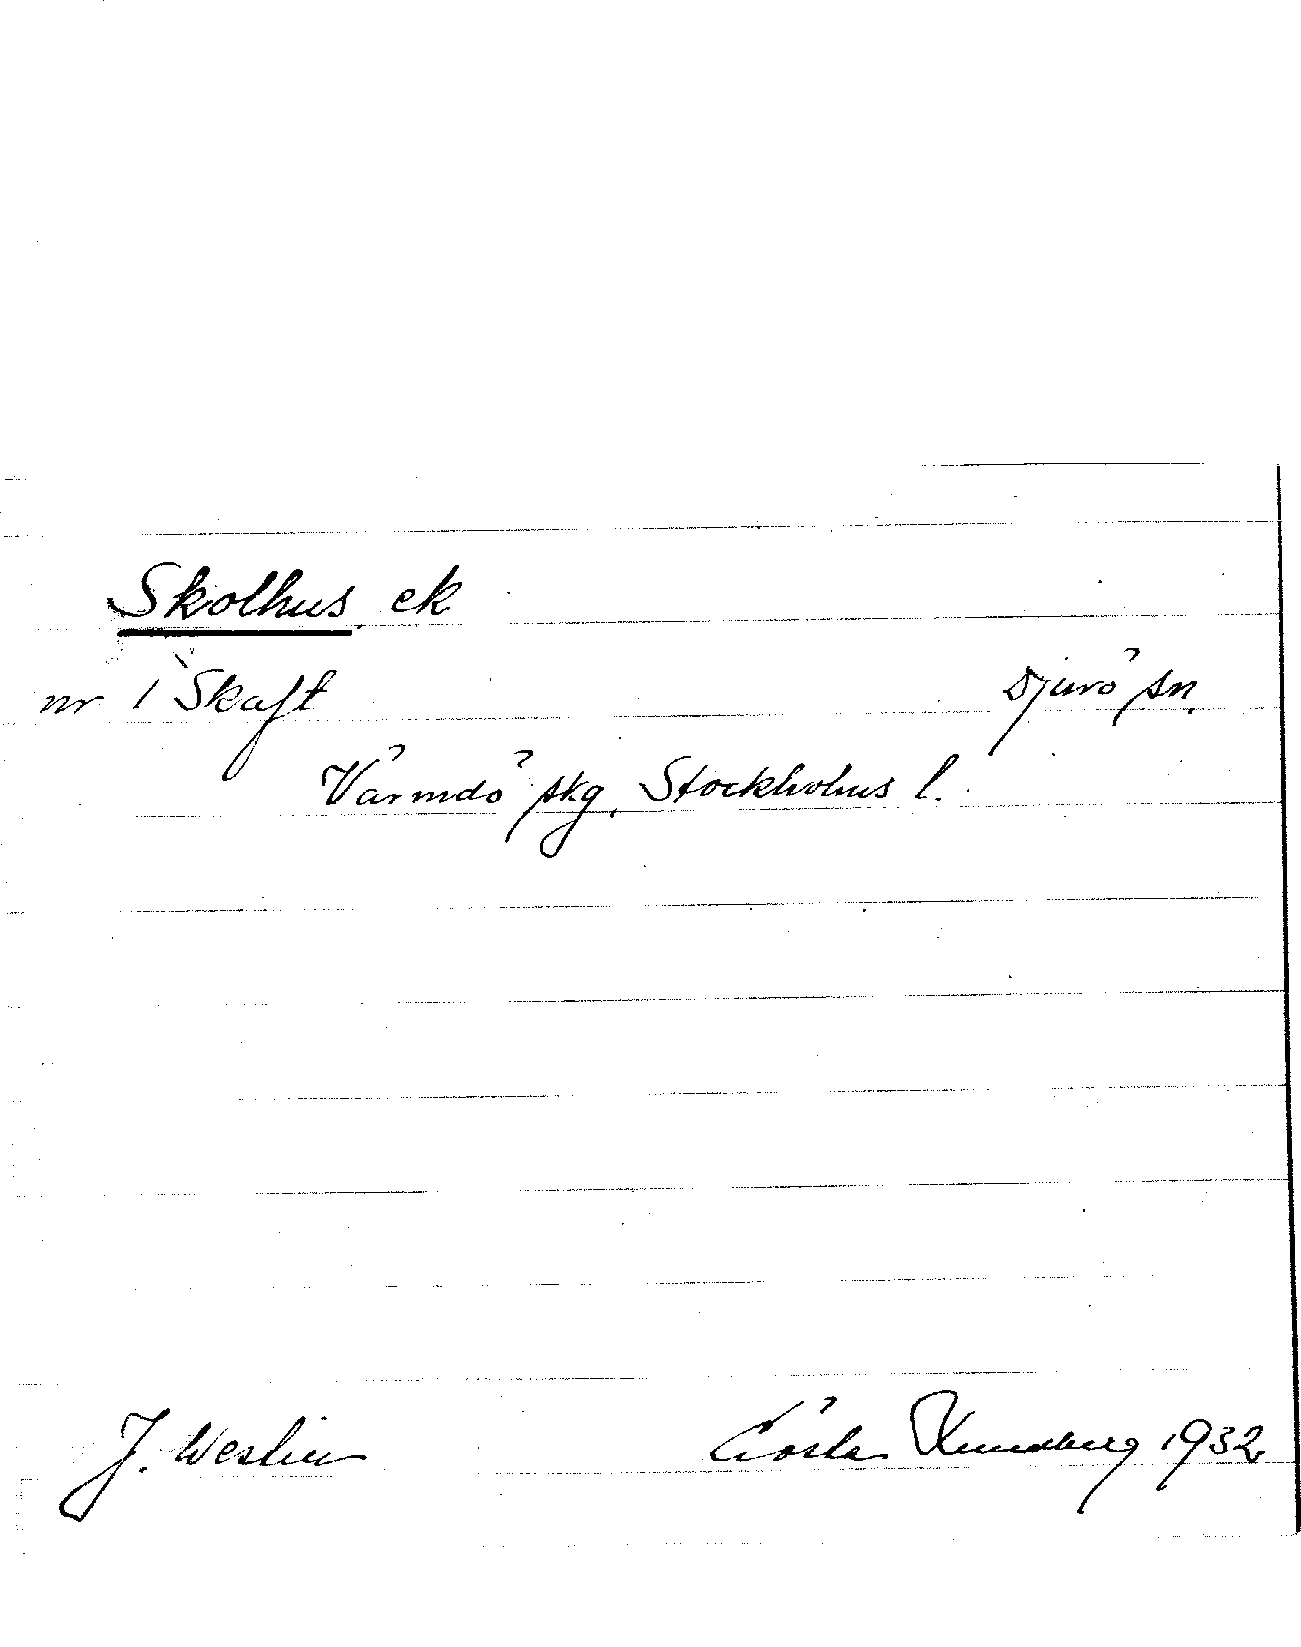 Skolhus, ek
nr 1 Skaft Djurö sn.
Värmdö skg, Stockholms l.
J. Westin Gösta 1932